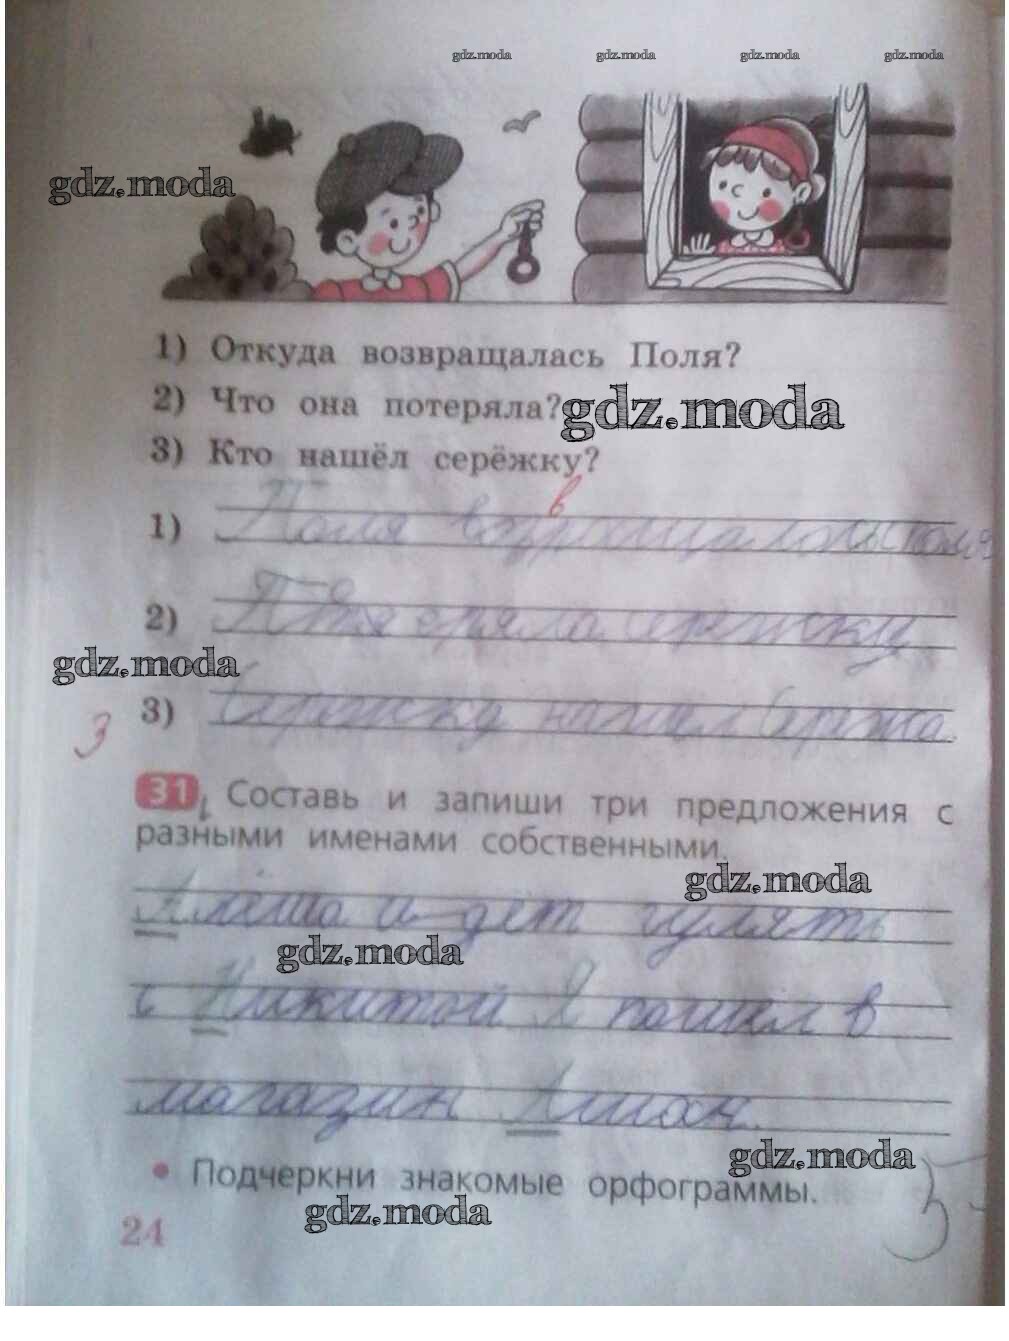 gdz.moda gdz.moda gdz.moda gdz.moda
gdz.moda
1) Откуда возвращалась Поля?
2) Что она потеряла?
gdz.moda
3) Кто нашёл серёжку?
в
1) Поля
2) Потеряла серёжку
gdz.moda
3) Серёжку нашёл Серёжа.
3
31 Составь и запиши три предложения с
разными именами собственными.
gdz.moda
Алёша идёт гулять
gdz.moda
с Никитой Я пошёл в
магазин Ашан.
gdz.moda
• Подчеркни знакомые орфограммы.
gdz.moda
24